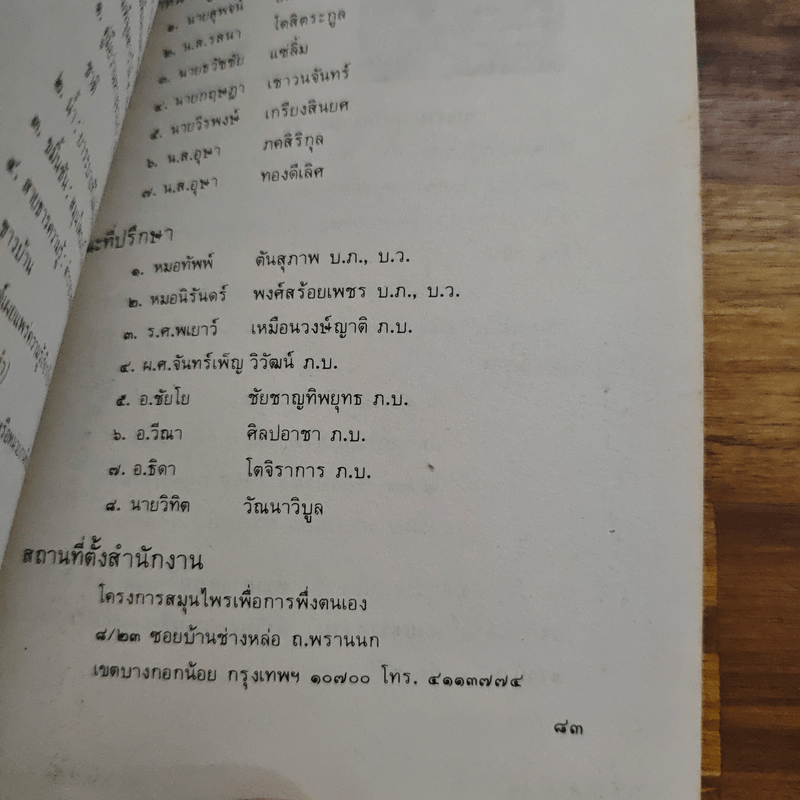 ๑. นายสุพจน์
๒. น.ส.รสนา โตสิตระกูล
๓. นายธวัชชัย แซ่ลิ้ม
๔. นายกฤษฎา เชาวนจันทร์
๕. นายวีรพงษ์ เกรียงสินยศ
๖. น.ส.อุษา ภคสิริกุล
๗. น.ส.อุษา ทองดีเลิศ
ที่ปรึกษา
๑. หมอทัพพ์ ตันสุภาพ บ.ภ., บ.ว.
๒. หมอนิรันดร์ พงศ์สร้อยเพชร บ.ภ., บ.ว.
๓. ร.ศ.พเยาว์ เหมือนวงษ์ญาติ ภ.บ.
๔. ผ.ศ.จันทร์เพ็ญ วิวัฒน์ ภ.บ.
๕. อ.ชัยโย ชัยชาญทิพยุทธ ภ.บ.
๖. อ.วีณา ศิลปอาชา ภ.บ.
๗. อ.ธิดา โตจิราการ ภ.บ.
๘. นายวิทิต วัณนาวิบูล
สถานที่ตั้งสำนักงาน
โครงการสมุนไพรเพื่อการพึ่งตนเอง
๘/๒๓ ซอยบ้านช่างหล่อ ถ.พรานนก
เขตบางกอกน้อย กรุงเทพฯ ๑๐๗๐๐ โทร. ๔๑๑๓๗๗๔
๘๓